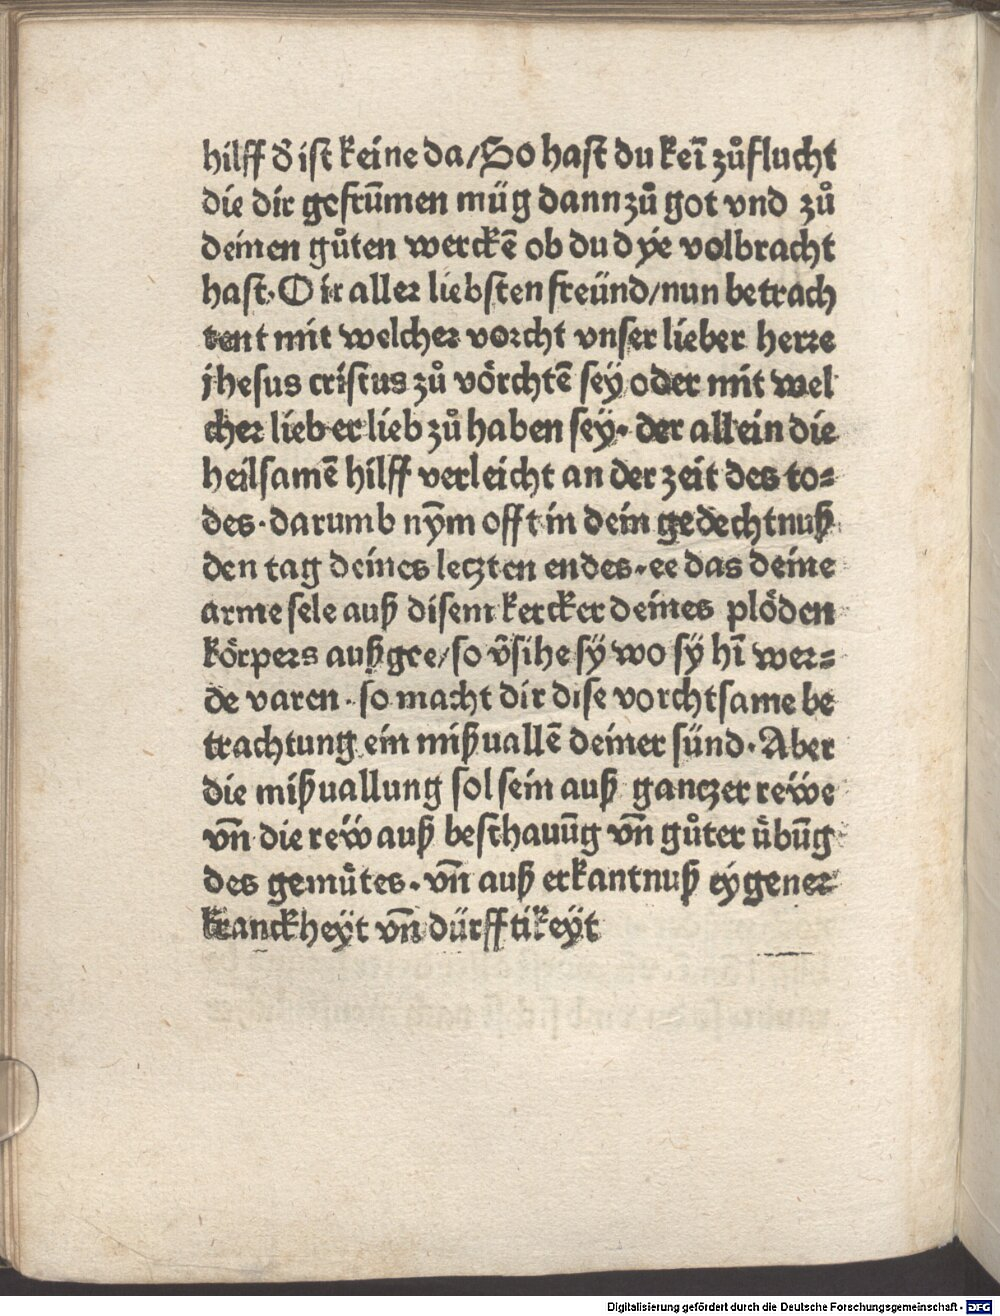 hilff d̕ ist keine da/So hast du kei zůflucht
die dir gefrūmen müg dann zů got vnd zů
deinen gůten werckē ob du dÿe volbracht
hast. O ir aller liebsten freünd/nun betrach
tent mit welcher vorcht vnser lieber herre
jhesus cristus zů vörchtē seÿ oder mit wel
cher lieb er lieb zů haben seÿ. der allein die
heilsamē hilff verleicht an der zeit des to=
des. darumb nȳm offt in dein gedechtnuß
den tag deines leczten endes. ee das deine
arme sele auß disem kercker deines plöden
körpers auß gee/so v̄sihe sÿ wo sÿ hī wer=
de varen. so macht dir dise vorchtsame be
trachtung ein mißuallē deiner sünd. Aber
die mißuallung sol sein auß ganczer reẅe
vn̄ die reẅ auß beschauūg vn̄ gůter übūg
des gemütes. vn̄ auß erkantnuß eÿgener
kranckheÿt vn̄ dürfftikeÿt
Digitalisierung gefördert durch die Deutsche Forschungsgemeinschaft - DFG